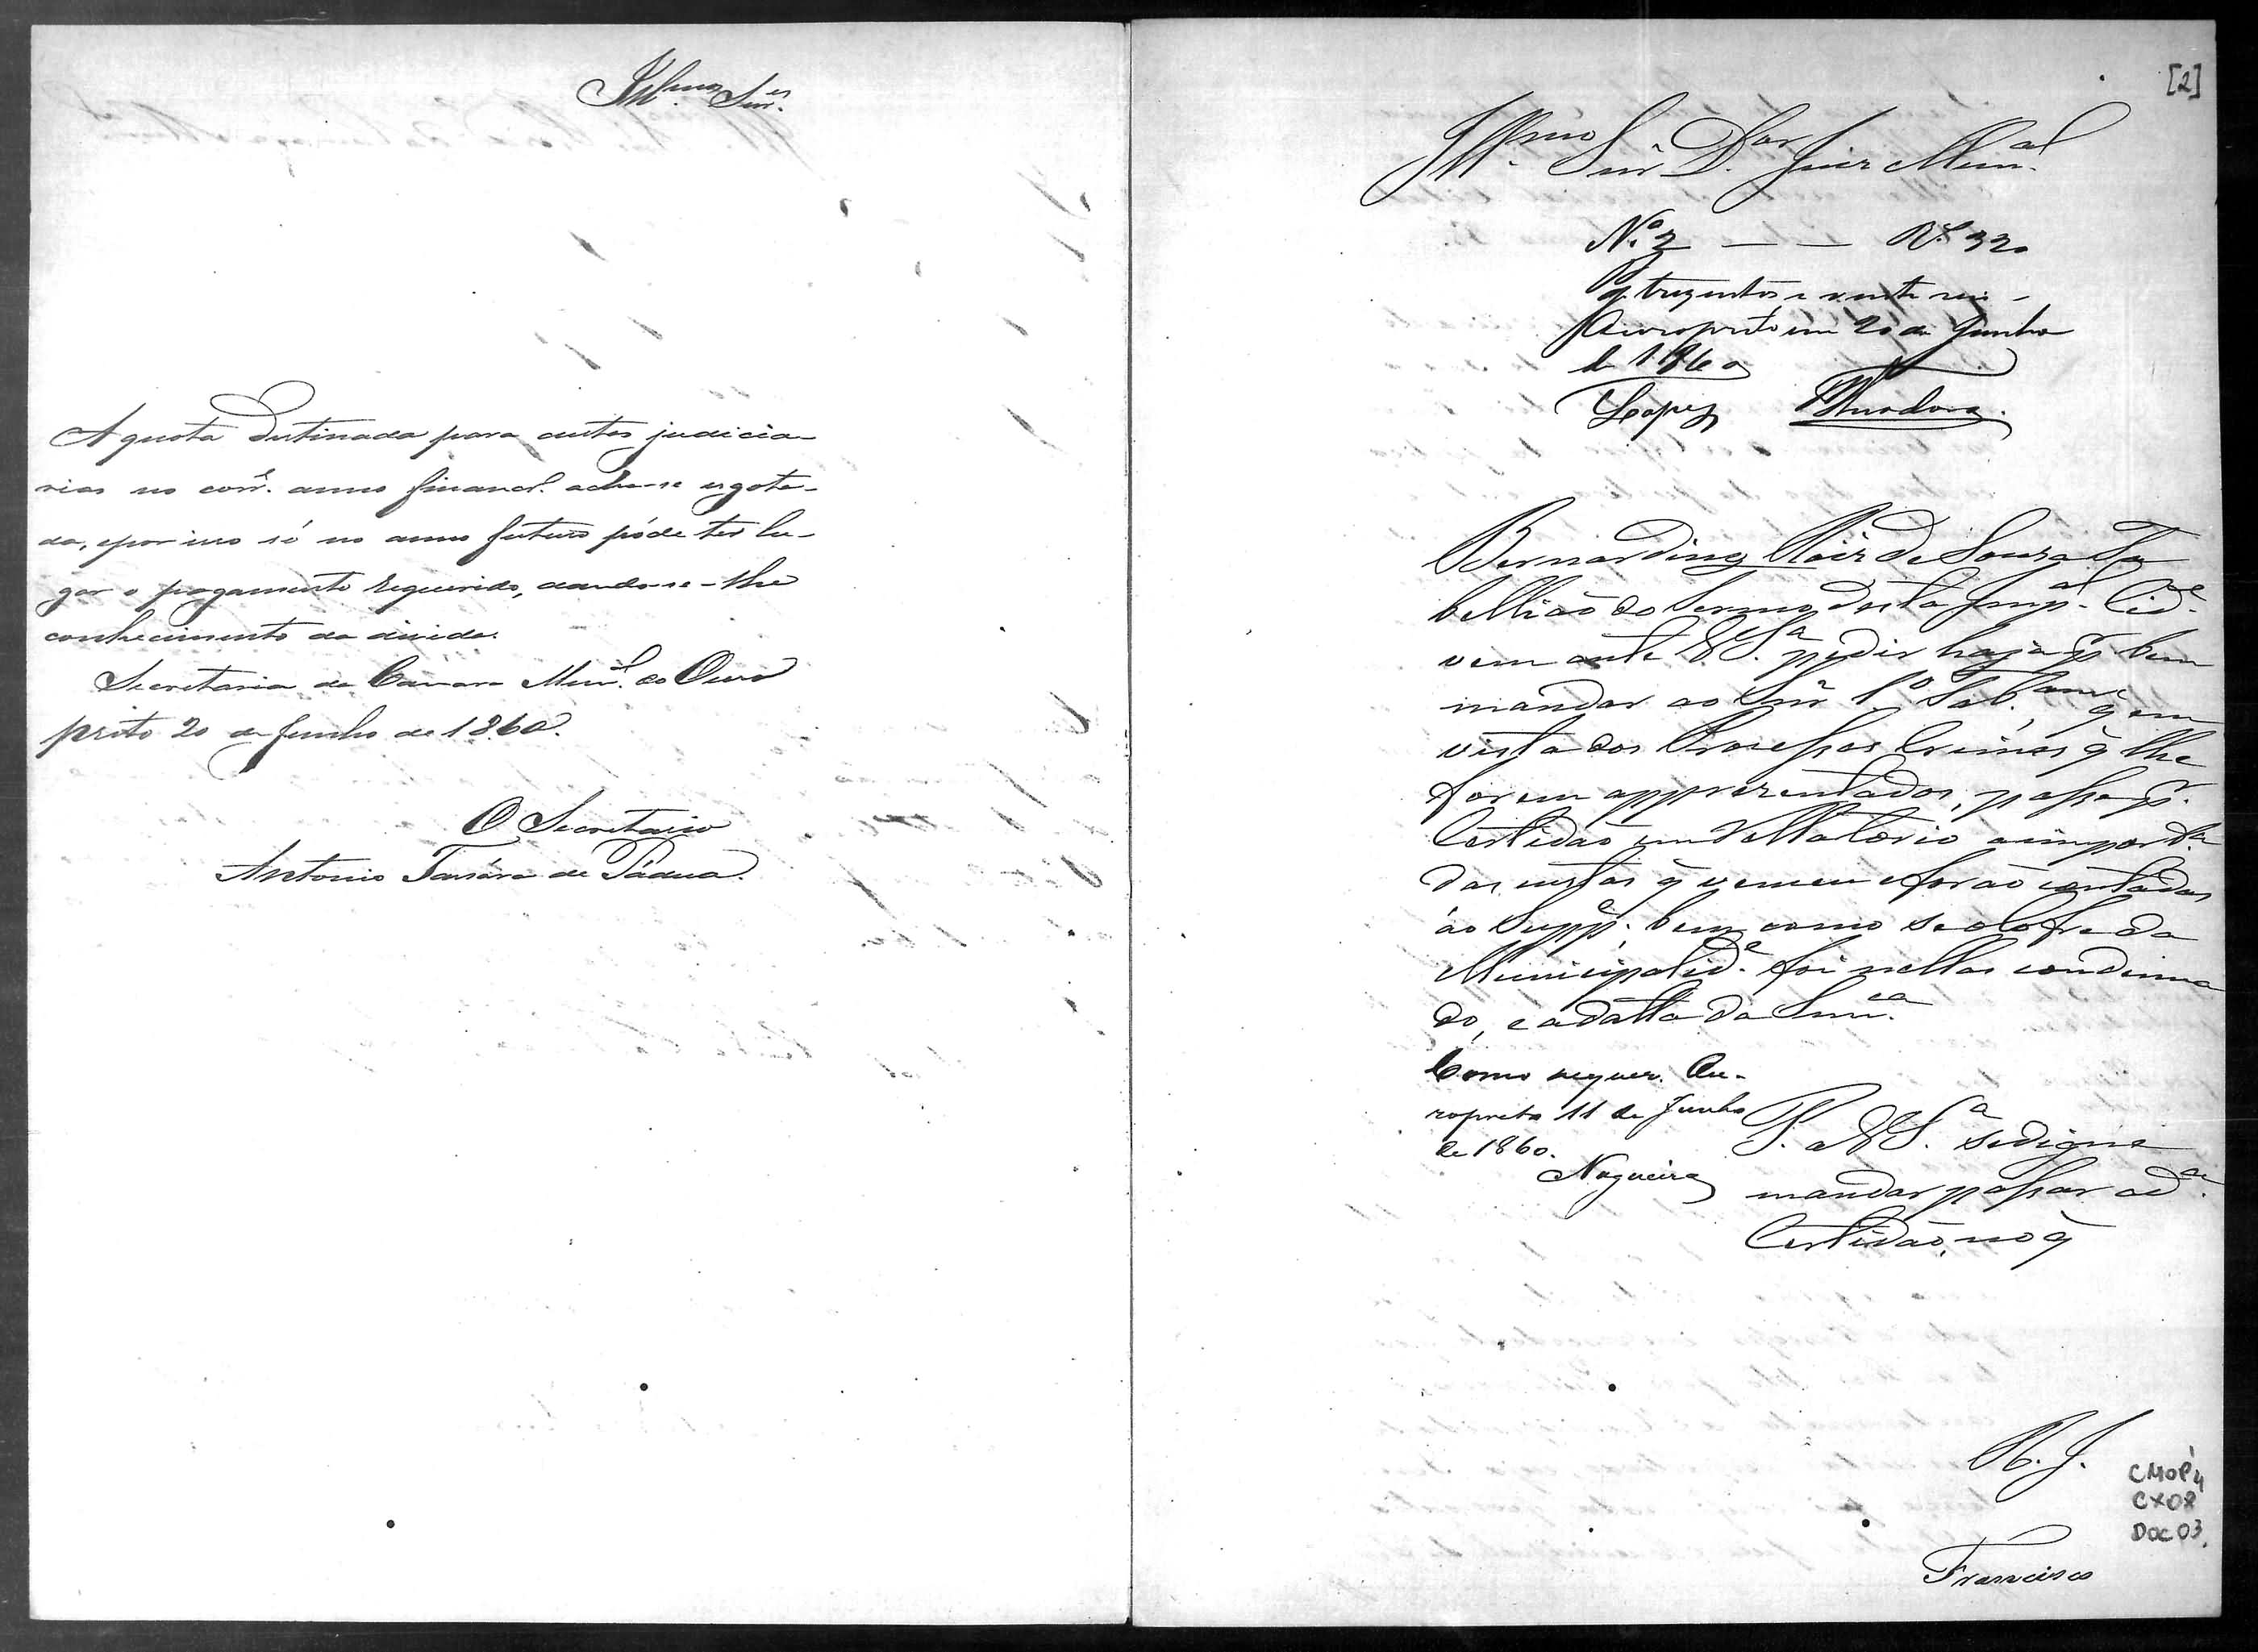 Illmos Snres
A quota destinada para custas judicia-
rias no corre. anno financl. acha-se esgota-
da, e por isso só no anno futuro póde ter lu-
gar o pagamento requerido, dando-se-lhe
conhecimento da divida.
Secretaria da Camara Munl. do Ouro
preto 20 de Junho de 1860.
O Secretario
Antonio de Padua.
[2]
Illmo Snr Dor Juiz Munal
No. 2 — — Rs 320
Pg trezentos e vinte reis -
Ouropreto em 20 de Junho
de 1860
Lopes
Bernardino Roiz de Souza Ta
bellião do Termo desta Impal. Cide.
vem ante V.Sa. pedir haja pr bem
mandar ao Snr 1o Tab. q em
vista dos Processos Crimes q lhe
forem apprezentados, passe pr.
Certidão em rellatorio a importca
das custas q venceu e forão contadas
ao Suppe. bem como se o Cofre da
Municipalide. foi nellas condemna
do, e a datta da Snnca.
Como requer. Ou-
ropreto 11 de Junho
de 1860.
Nogueira
P. a V.S.a se digne
mandar passar a da.
Certidão, no q
R. J.
CMOP
CX08
DOC 03.
Francisco